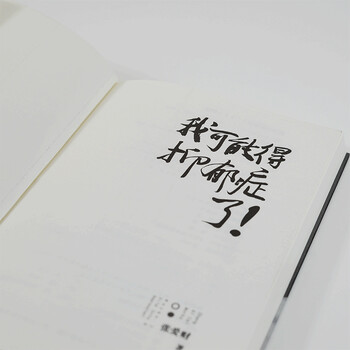 我可能得
抑郁症
了!
张爱财
著